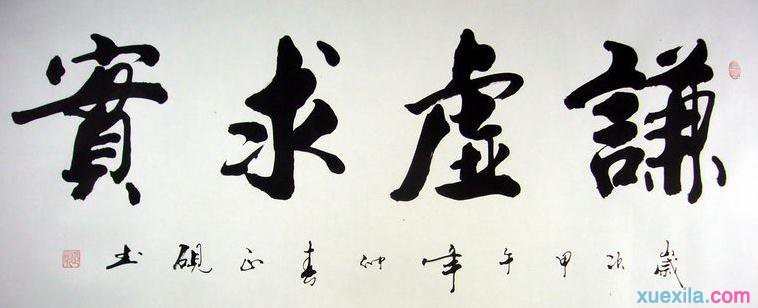 謙虛求實
歲次甲午年仲春正硯书
学习啦
xuexila.com